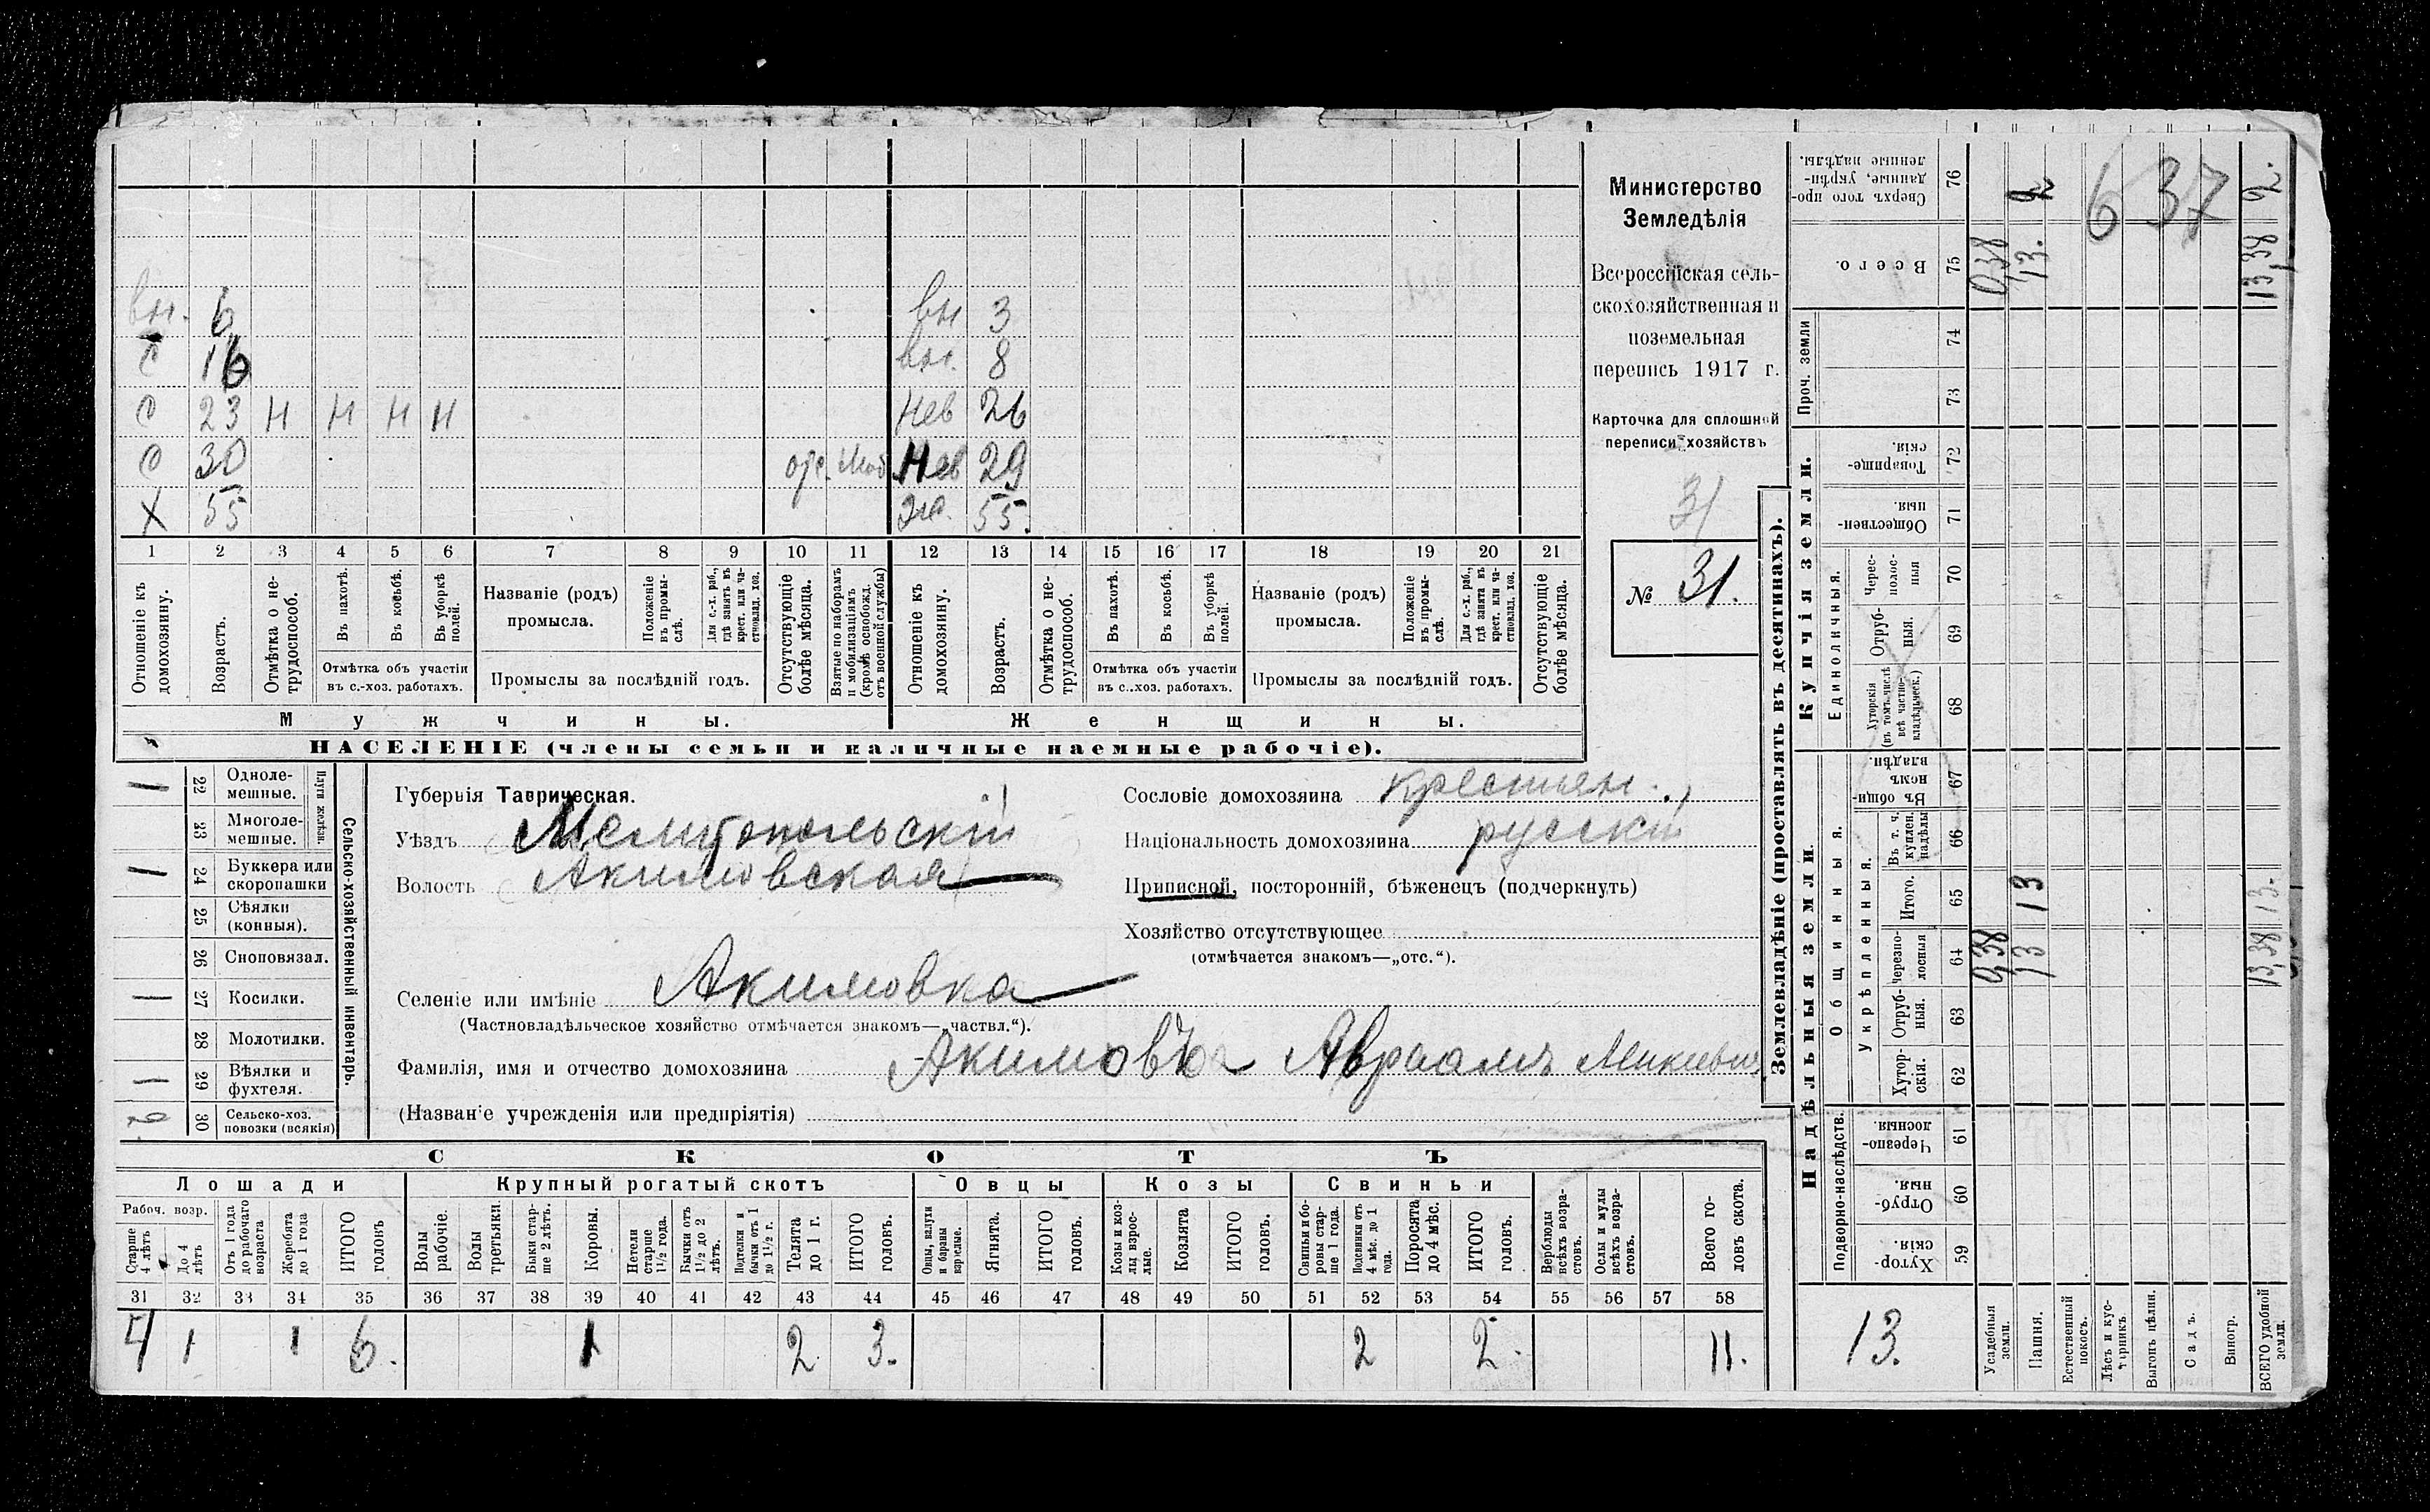 вн. 6 вн 3
с 16 вн. 8
с 23 н н н н Нев 26
с 30 отс. Моб Нев 29
Х 55 Же. 55.
1 2 3 4 5 6 7 8 9 10 11 12 13 14 15 16 17 18 19 20 21
Отношеніе къ домохозяину.
Возрастъ.
Отмѣтка о не-
трудоспособ.
Въ пахотѣ.
Въ косьбѣ.
Въ уборкѣ полей.
Отмѣтка объ участіи
въ с.-хоз. работахъ.
Названіе (родъ)
промысла.
Положеніе въ промы-
слѣ.
Для с.-х. раб., гдѣ занятъ въ крест. или ча-
стновлад. хоз.
Промыслы за послѣдній годъ.
Отсутствующіе болѣе мѣсяца.
Взятые по наборамъ и мобилизаціямъ (кромѣ освобожд. отъ военной службы)
Отношеніе къ домохозяину.
Возрастъ.
Отмѣтка о не-
трудоспособ.
Въ пахотѣ.
Въ косьбѣ.
Въ уборкѣ полей.
Отмѣтка объ участіи
въ с..хоз. работахъ.
Названіе (родъ)
промысла.
Положеніе въ промы-
слѣ.
Для с.-х. раб., гдѣ занята въ крест. или ча-
стновлад. хоз.
Промыслы за послѣдній годъ.
Отсутствующіе болѣе мѣсяца.
Мужчины. Женщины.
НАСЕЛЕНІЕ (члены семьи и наличные наемные рабочіе).
Министерство
Земледѣлія
Всероссійская сель-
скохозяйственная и
поземельная
перепись 1917 г.
Карточка для сплошной
переписи хозяйствъ
31
№ 31.
1 22 Одноле-
мешные.
23 Многоле-
мешные.
Плуги желѣзн.
1 24 Буккера или
скоропашки
25 Сѣялки
(конныя).
26 Сноповязал.
1 27 Косилки.
28 Молотилки.
1 29 Вѣялки и
фухтеля.
2 30 Сельско-хоз.
повозки (всякія)
Сельско-хозяйственный инвентарь.
Губернія Таврическая.
Уѣздъ Мелитопольскій
Волость Акимовская
Сословіе домохозяина крестьян.
Національность домохозяина русскій
Приписной, посторонній, бѣженецъ (подчеркнуть)
Хозяйство отсутствующее
(отмѣчается знакомъ—„отс.“).
Селеніе или имѣніе Акимовка
(Частновладѣльческое хозяйство отмѣчается знакомъ—„частвл.“).
Фамилія, имя и отчество домохозяина Акимовъ Авраамъ
(Названіе учрежденія или предпріятія)
СКОТЪ
Лошади Крупный рогатый скотъ Овцы Козы Свиньи
Рабоч. возр.
Старше 4 лѣтъ
До 4 лѣтъ
Отъ 1 года до рабочаго возраста
Жеребята до 1 года
ИТОГО головъ
Волы рабочіе.
Волы третьяки.
Быки стар-
ше 2 лѣтъ.
Коровы.
Нетели старше 1½ года.
Бычки отъ 1½ до 2 лѣтъ.
Подтелки и бычки отъ 1 до 1½ г.
Телята до 1 г.
ИТОГО головъ.
Овцы, валухи и бараны взрослые.
Ягнята.
ИТОГО головъ.
Козы и коз-
лы взрос-
лые.
Козлята
ИТОГО головъ.
Свиньи и бо-
ровы стар-
ше 1 года.
Подсвинки отъ 4 мѣс. до 1 года.
Поросята до 4 мѣс.
ИТОГО головъ.
Верблюды всѣхъ возра-
стовъ.
Ослы и мулы всѣхъ возра-
стовъ.
Всего го-
ловъ скота.
31 32 33 34 35 36 37 38 39 40 41 42 43 44 45 46 47 48 49 50 51 52 53 54 55 56 57 58
4 1 1 6. 1 2 3. 2 2. 11.
Землевладѣніе (проставлять въ десятинахъ).
Надѣльныя земли Купчія земли.
Сверхъ того про-
данные, укрѣп-
ленные надѣлы. 76 2 2.
637
Всего. 75 0,38 13. 13,38
Проч. земли 74
73
Товарище-
скія. 72
Обществен-
ныя 71
Единоличныя.
Черес-
полос-
ныя 70
Отруб-
ныя. 69
Хуторскія (въ томъ числѣ всѣ частно-
владѣльческ.) 68
Общинныя.
Въ общин-
номъ владѣн. 67
Укрѣпленныя.
Въ т. ч. куплен. надѣлы 66
Итого. 65 13 13.
Черезпо-
лосныя 64 0,38 13 13,38
Отруб-
ныя. 63
Хутор-
скія. 62
Подворно-наслѣдств.
Черезпо-
лосныя. 61
Отруб-
ныя. 60
Хутор-
скія. 59
13.
Усадебныя земли.
Пашня.
Естественный покосъ.
Лѣсъ и кус-
тарникъ.
Выгонъ цѣлин.
Садъ.
Виногр.
ВСЕГО удобной земли.